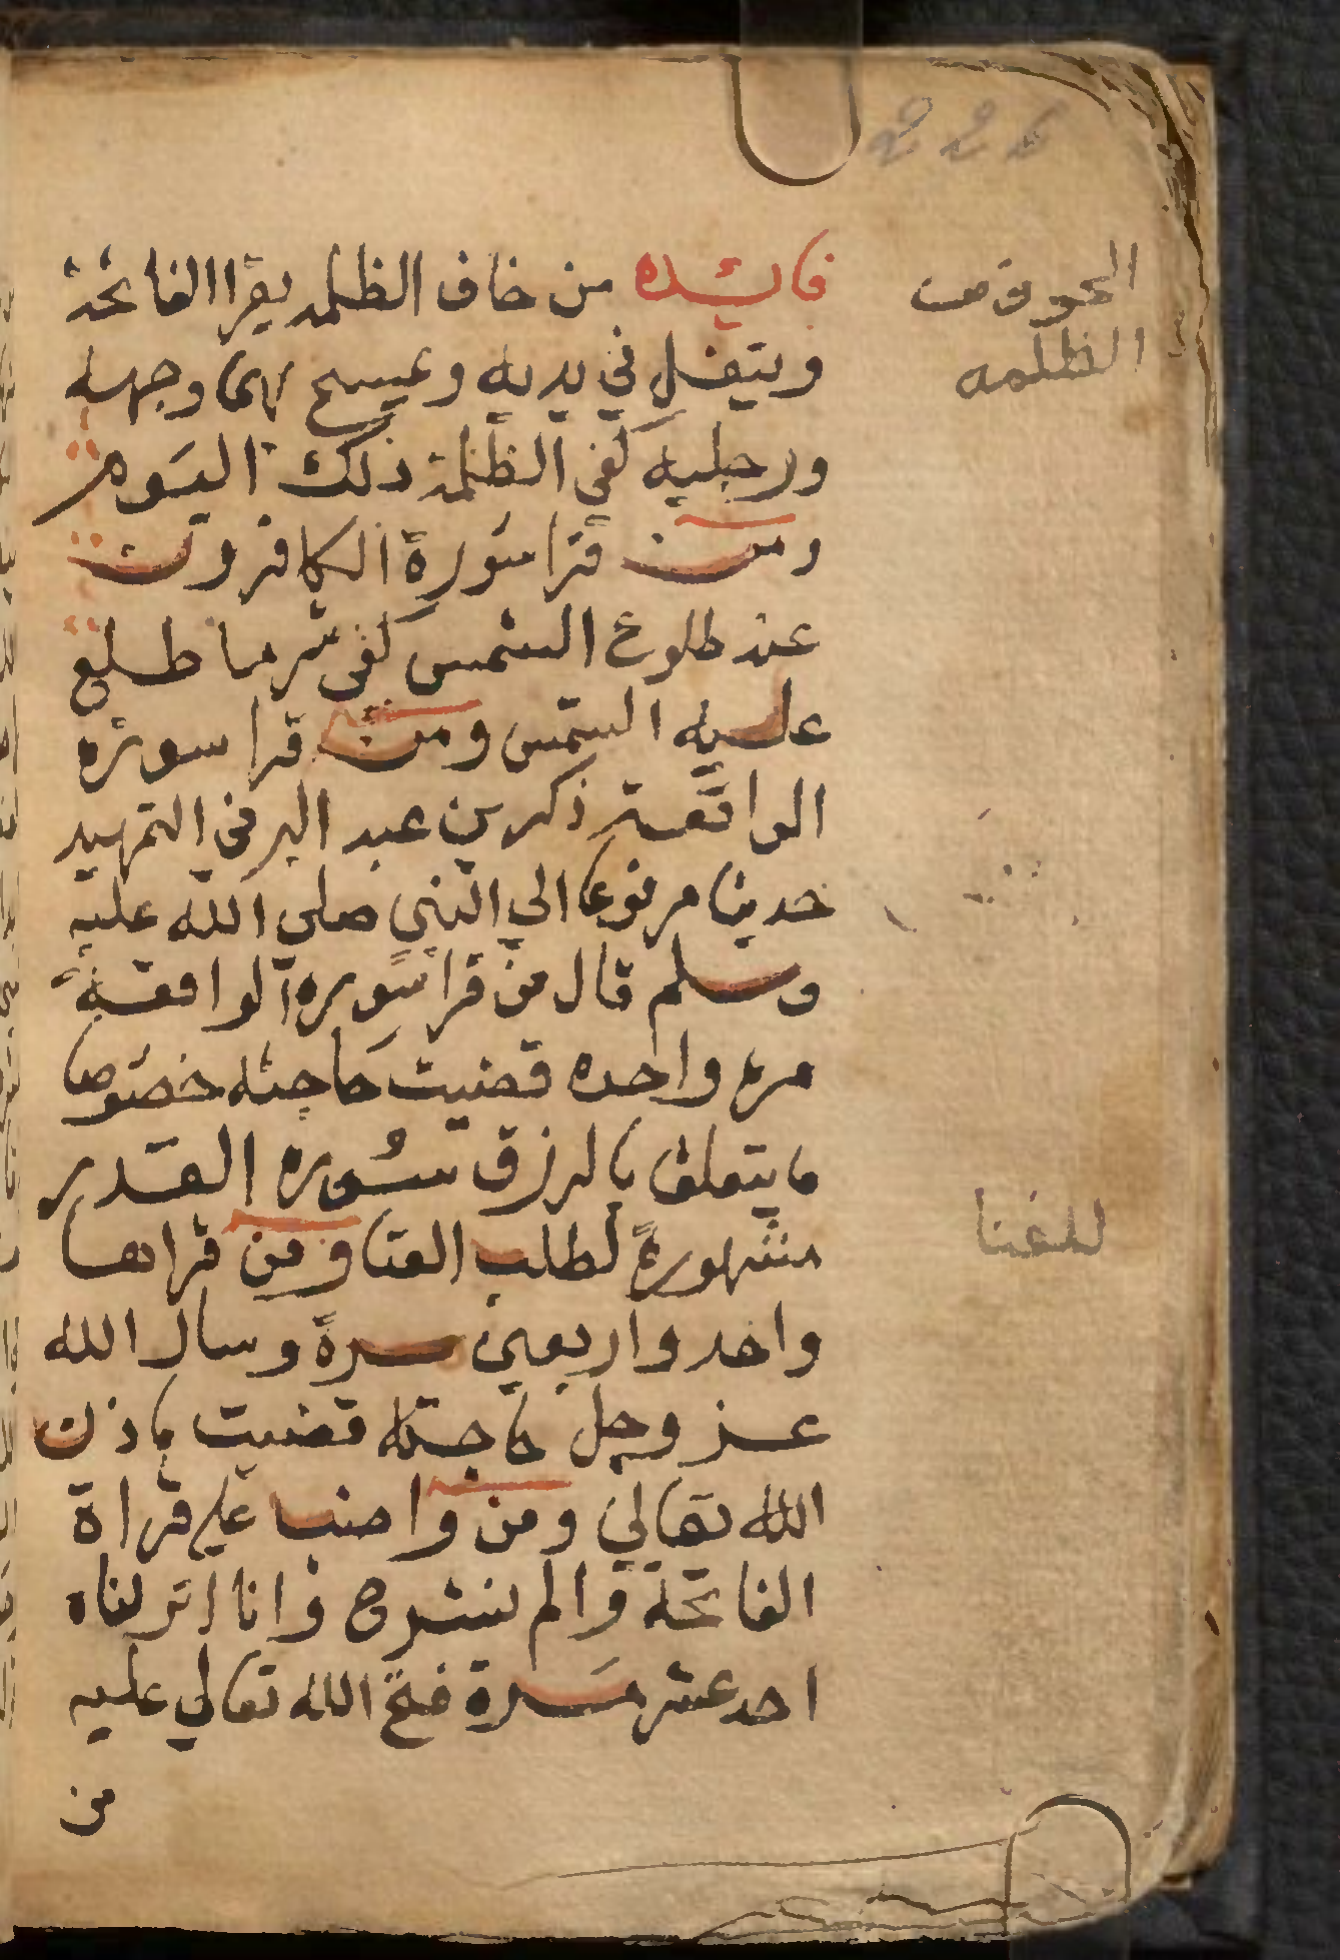 فائده من خاف الظلمه يقرا الفاتحة
ويتفل في يديه ويمسح بهما وجهه
ورجليه كفي الظلمة ذلك اليوم
ومن قرا سورة الكافرون
عند طلوع الشمس كفى شر ما طلع
عليه الشمس ومن قرا سورة
الواقعة ذكر بن عبد البر في التمهيد
حديثا مرفوعا الي النبي صلى الله عليه
وسلم قال من قرا سوره الواقعة
مره واحده قضيت حاجته خصوصا
ما يتعلق بالرزق سوره القدر
مشهورة لطلب الغنا ومن قراها
واحد واربعين مرة وسال الله
عز وجل حاجته قضيت باذن
الله تعالي ومن واضب على قراة
الفاتحة والم نشرح وانا انزلناه
احد عشر مرة فتح الله تعالي عليه
من
الظلمه
للغنا